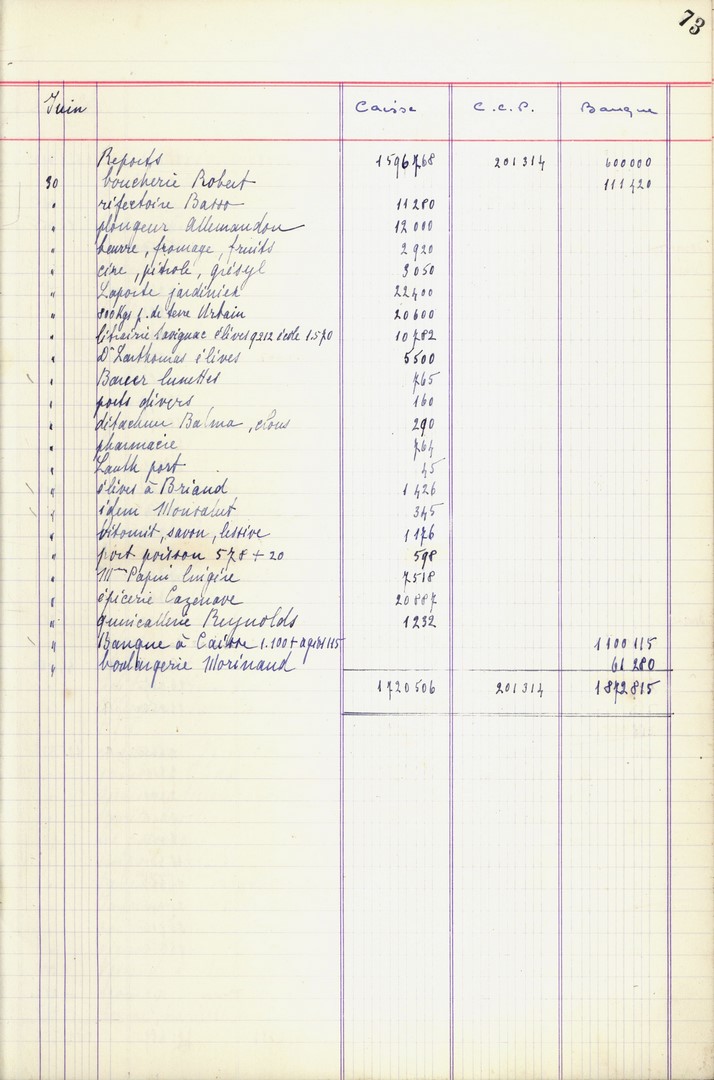 73
Juin Caisse C.C.P. Banque
Reports 1596768 201314 600000
30 boucherie Robert 111420
" réfectoire Basso 11280
" plongeur Allemandou 12000
" beurre, fromage, fruits 2920
" cire, pétrole, grésyl 3050
" Laporte jardinier 22400
" 800Kgs p. de terre Urbain 20600
" librairie Savignac élèves 9212 école 1.570 10782
" Dr Larthomas élèves 5500
" lunettes 765
" ports divers 160
" détacheur Balma, clous 290
" pharmacie 764
" Lauth port 45
" élèves à Briand 1426
" idem 345
" vitomit, savon, lessive 1176
" port poisson 578 + 20 598
" Mme Papin lingère 7518
" épicerie Cazenave 20887
" quincaillerie Reynolds 1232
" Banque à Caisse 1.100 + agios 115 1100115
" boulangerie Morinaud 61280
1720506 201314 1872815